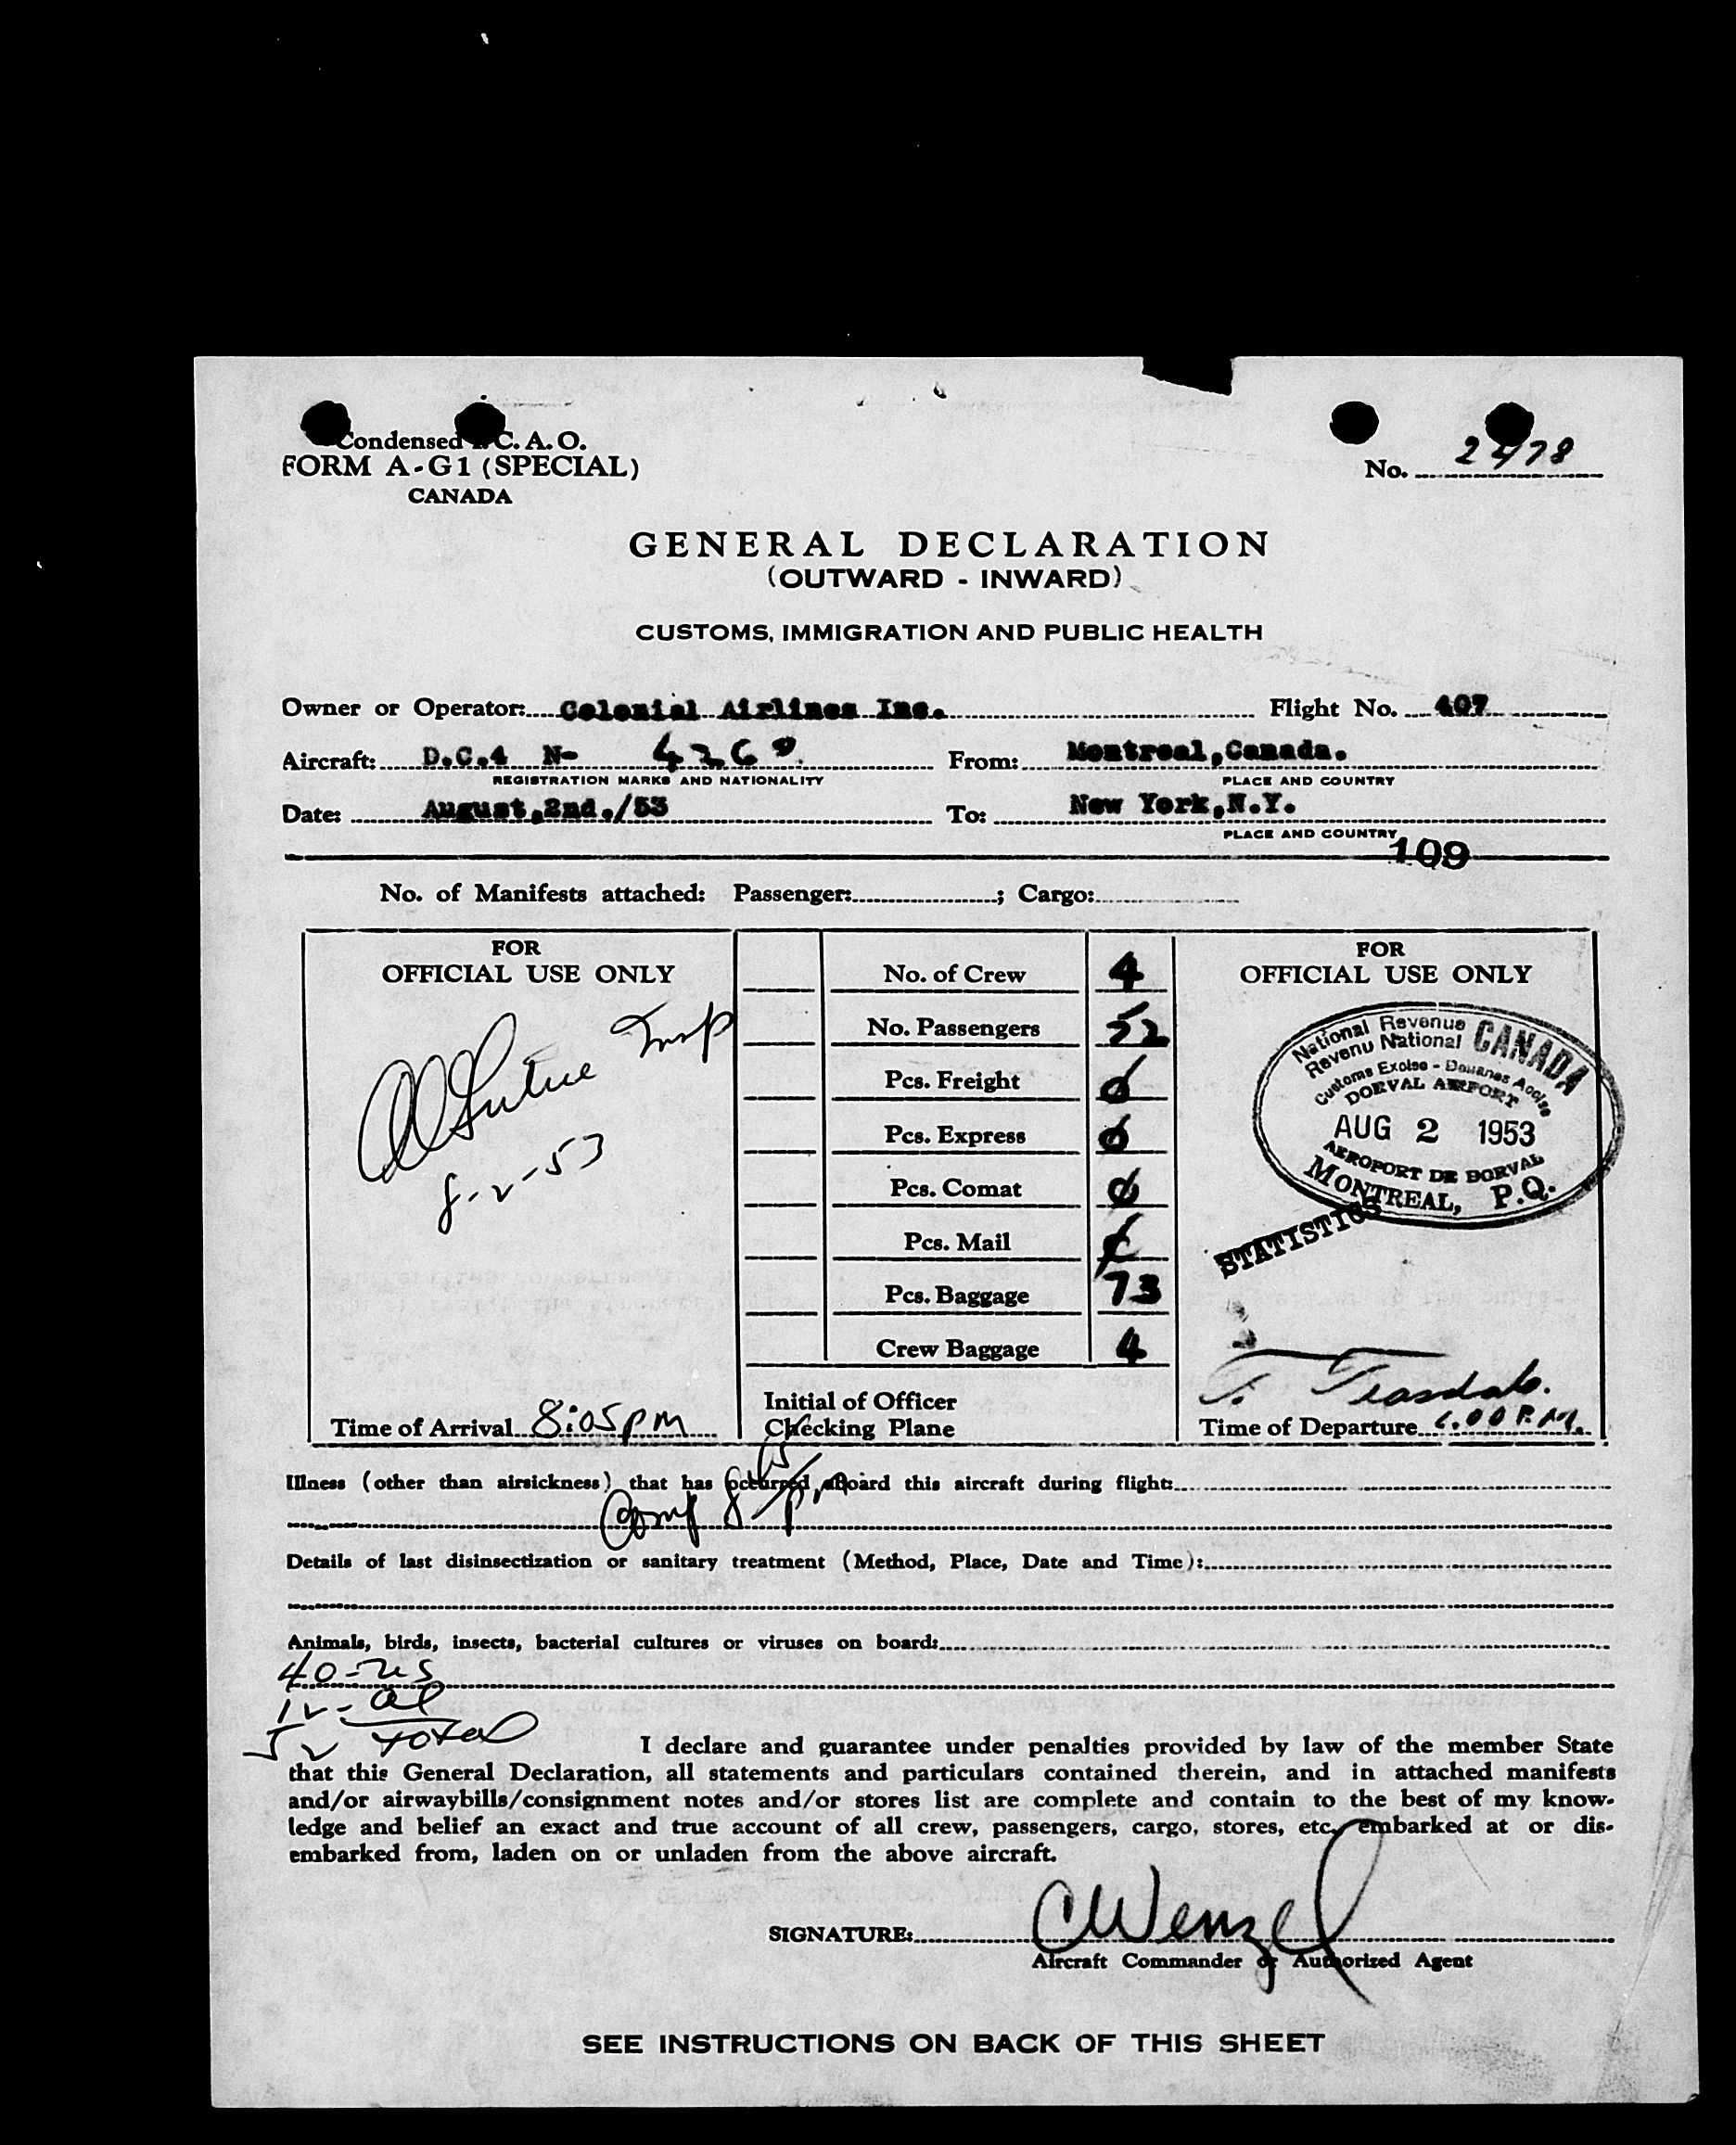 Condensed I.C.A.O.
FORM A-G1 (SPECIAL)
CANADA
No. 2478
GENERAL DECLARATION
(OUTWARD - INWARD)
CUSTOMS, IMMIGRATION AND PUBLIC HEALTH
Owner or Operator: Colonial Airlines Inc. Flight No. 407
Aircraft: D.C.4 N- 4269 From: Montreal, Canada.
REGISTRATION MARKS AND NATIONALITY PLACE AND COUNTRY
Date: August, 2nd./53 To: New York, N.Y.
PLACE AND COUNTRY
109
No. of Manifests attached: Passenger: ; Cargo:
FOR
OFFICIAL USE ONLY
Insp
8-2-53
Time of Arrival 8:05 pm
No. of Crew 4
No. Passengers 52
Pcs. Freight 0
Pcs. Express 0
Pcs. Comat 0
Pcs. Mail
Pcs. Baggage 73
Crew Baggage 4
Initial of Officer
Checking Plane
FOR
OFFICIAL USE ONLY
National Revenue
Revenu National
CANADA
Customs Excise - Douanes Accise
DORVAL AIRPORT
AUG 2 1953
AEROPORT DE DORVAL
MONTREAL, P.Q.
STATISTICS
T. Teasdale.
Time of Departure 6.00 P.M.
Illness (other than airsickness) that has occurred, aboard this aircraft during flight:
Comp
Details of last disinsectization or sanitary treatment (Method, Place, Date and Time):
Animals, birds, insects, bacterial cultures or viruses on board:
40-us
12-al
52 total
I declare and guarantee under penalties provided by law of the member State
that this General Declaration, all statements and particulars contained therein, and in attached manifests
and/or airwaybills/consignment notes and/or stores list are complete and contain to the best of my know-
ledge and belief an exact and true account of all crew, passengers, cargo, stores, etc. embarked at or dis-
embarked from, laden on or unladen from the above aircraft.
SIGNATURE: C Wenzel
Aircraft Commander or Authorized Agent
SEE INSTRUCTIONS ON BACK OF THIS SHEET